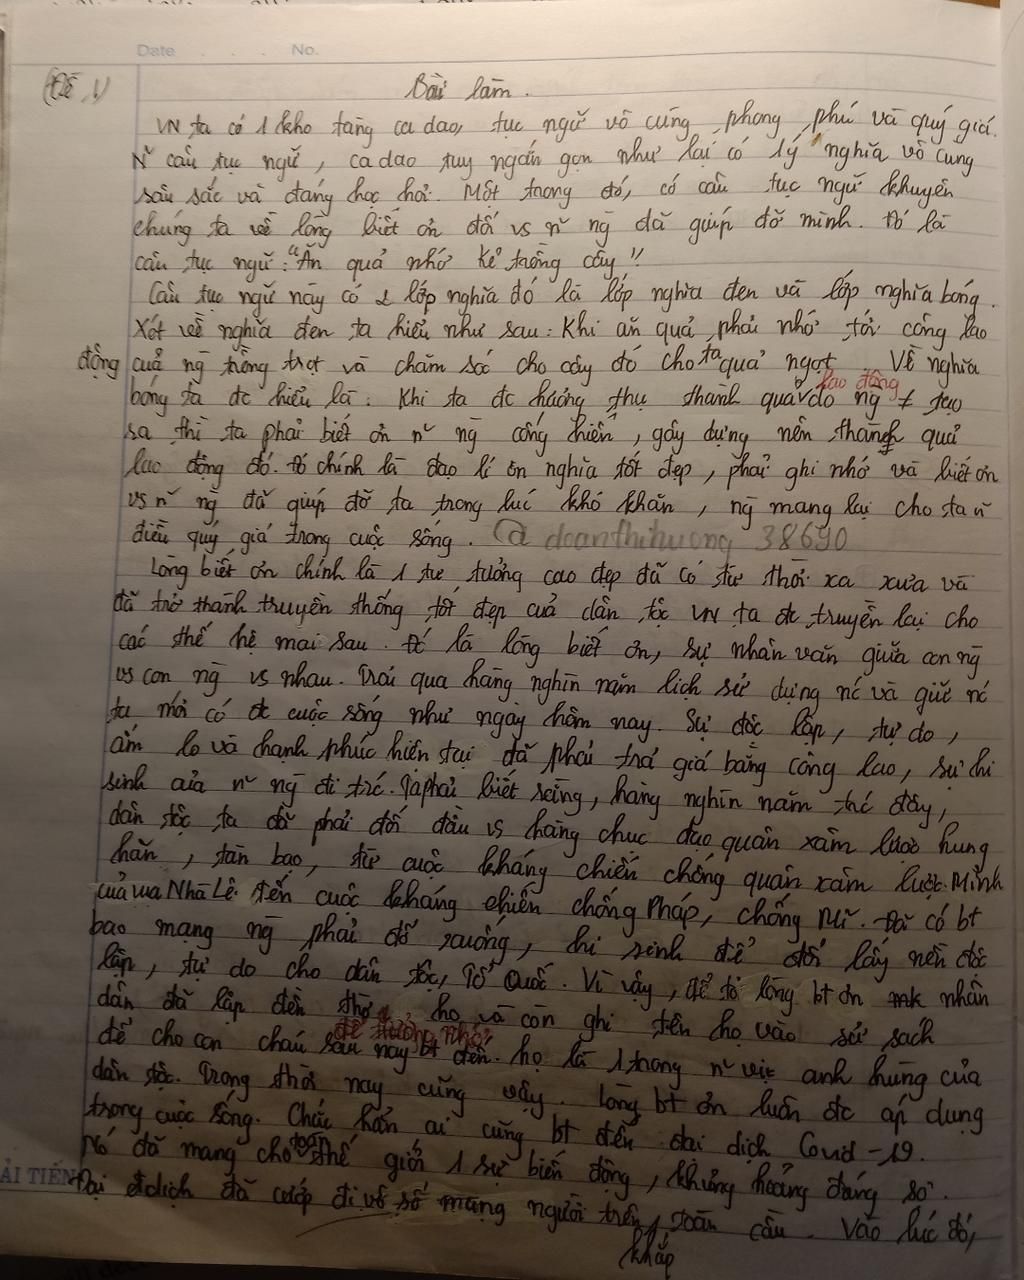 Date . . . No.
(Đề 1)
Bài làm.
VN ta có 1 kho tàng ca dao, tục ngữ vô cùng phong phú và quý giá.
N~ câu tục ngữ, ca dao tuy ngắn gọn như lại có 1 ý nghĩa vô cùng
sâu sắc và đáng học hỏi. Một trong đó, có câu tục ngữ khuyên
chúng ta về lòng biết ơn đối vs n~ ng đã giúp đỡ mình. Đó là
câu tục ngữ: "Ăn quả nhớ kẻ trồng cây".
Câu tục ngữ này có 2 lớp nghĩa đó là lớp nghĩa đen và lớp nghĩa bóng.
Xét về nghĩa đen ta hiểu như sau: Khi ăn quả phải nhớ tới công lao
động của ng trồng trọt và chăm sóc cho cây đó cho ta quả ngọt. Về nghĩa
bóng ta đc hiểu là: Khi ta đc hưởng thụ thành quả lao động do ng ≠ tạo
ra thì ta phải biết ơn n~ ng cống hiến, gây dựng nên thành quả
lao động đó. Đó chính là đạo lí ơn nghĩa tốt đẹp, phải ghi nhớ và biết ơn
vs n~ ng đã giúp đỡ ta trong lúc khó khăn, ng mang lại cho ta n~
điều quý giá trong cuộc sống. @doanthihuong38690
Lòng biết ơn chính là 1 tư tưởng cao đẹp đã có từ thời xa xưa và
đã trở thành truyền thống tốt đẹp của dân tộc VN ta đc truyền lại cho
các thế hệ mai sau. Đó là lòng biết ơn, sự nhân văn giữa con ng
vs con ng vs nhau. Trải qua hàng nghìn năm lịch sử dựng nc và giữ nc
ta mới có đc cuộc sống như ngày hôm nay. Sự độc lập, tự do,
ấm lo và hạnh phúc hiện tại đã phải trả giá bằng công lao, sự hi
sinh của n~ ng đi trc. Ta phải biết rằng, hàng nghìn năm trc đây,
dân tộc ta đã phải đối đầu vs hàng chục đạo quân xâm lược hung
hãn, tàn bạo, từ cuộc kháng chiến chống quân xâm lược Minh
của vua Nhà Lê đến cuộc kháng chiến chống Pháp, chống Mĩ. Đã có bt
bao mạng ng phải đổ xuống, hi sinh để đổi lấy nền độc
lập, tự do cho dân tộc, Tổ Quốc. Vì vậy, để tỏ lòng bt ơn mk nhân
dân đã lập đền thờ để tưởng nhớ họ và còn ghi tên họ vào sử sách
để cho con cháu sau này bt đến họ là 1 trong n~ vị anh hùng của
dân tộc. Trong thời nay cũng vậy. Lòng bt ơn luôn đc áp dụng
trong cuộc sống. Chắc hẳn ai cũng bt đến đại dịch Covid-19.
Nó đã mang cho toàn thế giới 1 sự biến động, khủng hoảng đáng sợ.
Đại dịch đã cướp đi vô số mạng người trên khắp toàn cầu. Vào lúc đó,
ẢI TIẾN